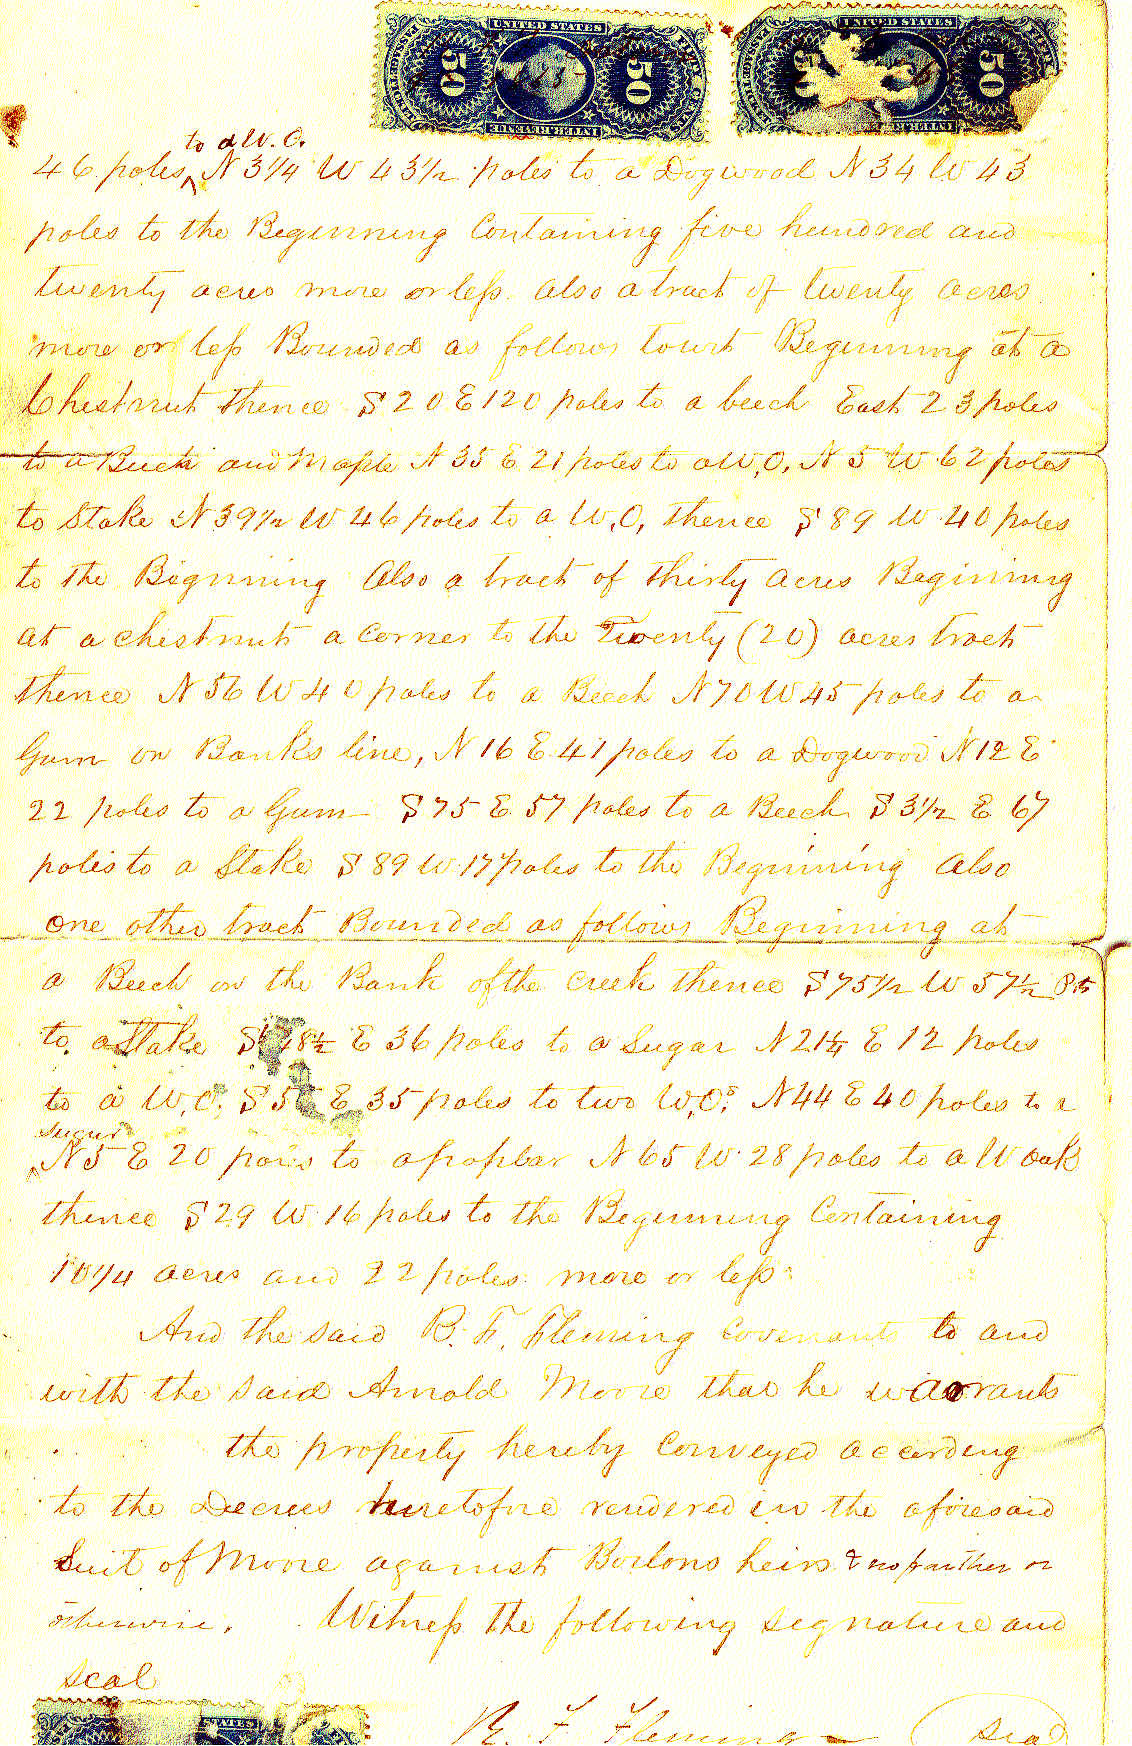 UNITED STATES
50 50
INTER. REVENUE
FIFTY CENTS
UNITED STATES
50
to a W. O.
46 poles, N 3 1/4 W 43 1/2 poles to a Dogwood N 34 W 43
poles to the Beginning Containing five hundred and
twenty acres more or less. also a tract of twenty acres
more or less Bounded as follows towit Beginning at a
Chestnut thence S 20 E 120 poles to a beech East 23 poles
to a Buch and Maple N 35 E 21 poles to a W.O. N 5 W 62 poles
to Stake N 39 1/2 W 46 poles to a W.O, thence S 89 W 40 poles
to the Beginning Also a tract of thirty acres Beginning
at a chestnut a corner to the Twenty (20) acres tract
thence N 56 W 40 poles to a Beech N 70 W 45 poles to a
Gum on Banks line, N 16 E 41 poles to a Dogwood N 12 E
22 poles to a Gum S 75 E 57 poles to a Beech S 3 1/2 E 67
poles to a Stake S 89 W 17 poles to the Beginning Also
one other tract Bounded as follows Beginning at
a Beech on the Bank of the creek thence S 75 1/2 W 57 1/2 Pts
to a Stake S 48 1/2 E 36 poles to a Sugar N 21 1/4 E 12 poles
to a W.O. S 5 E 35 poles to two W.O.s N 44 E 40 poles to a
sugar
N 5 E 20 poles to a poplar N 65 W 28 poles to a W oak
thence S 29 W 16 poles to the Beginning Containing
101/4 acres and 22 poles more or less
And the said B. F. Fleming covenants to and
with the said Arnold Moore that he warrants
the property hereby Conveyed according
to the Decrees heretofore rendered in the aforesaid
Suit of Moore against Boilons heirs & no further or
otherwise. Witness the following segnature and
seal
B. F. Fleming seal
STATES